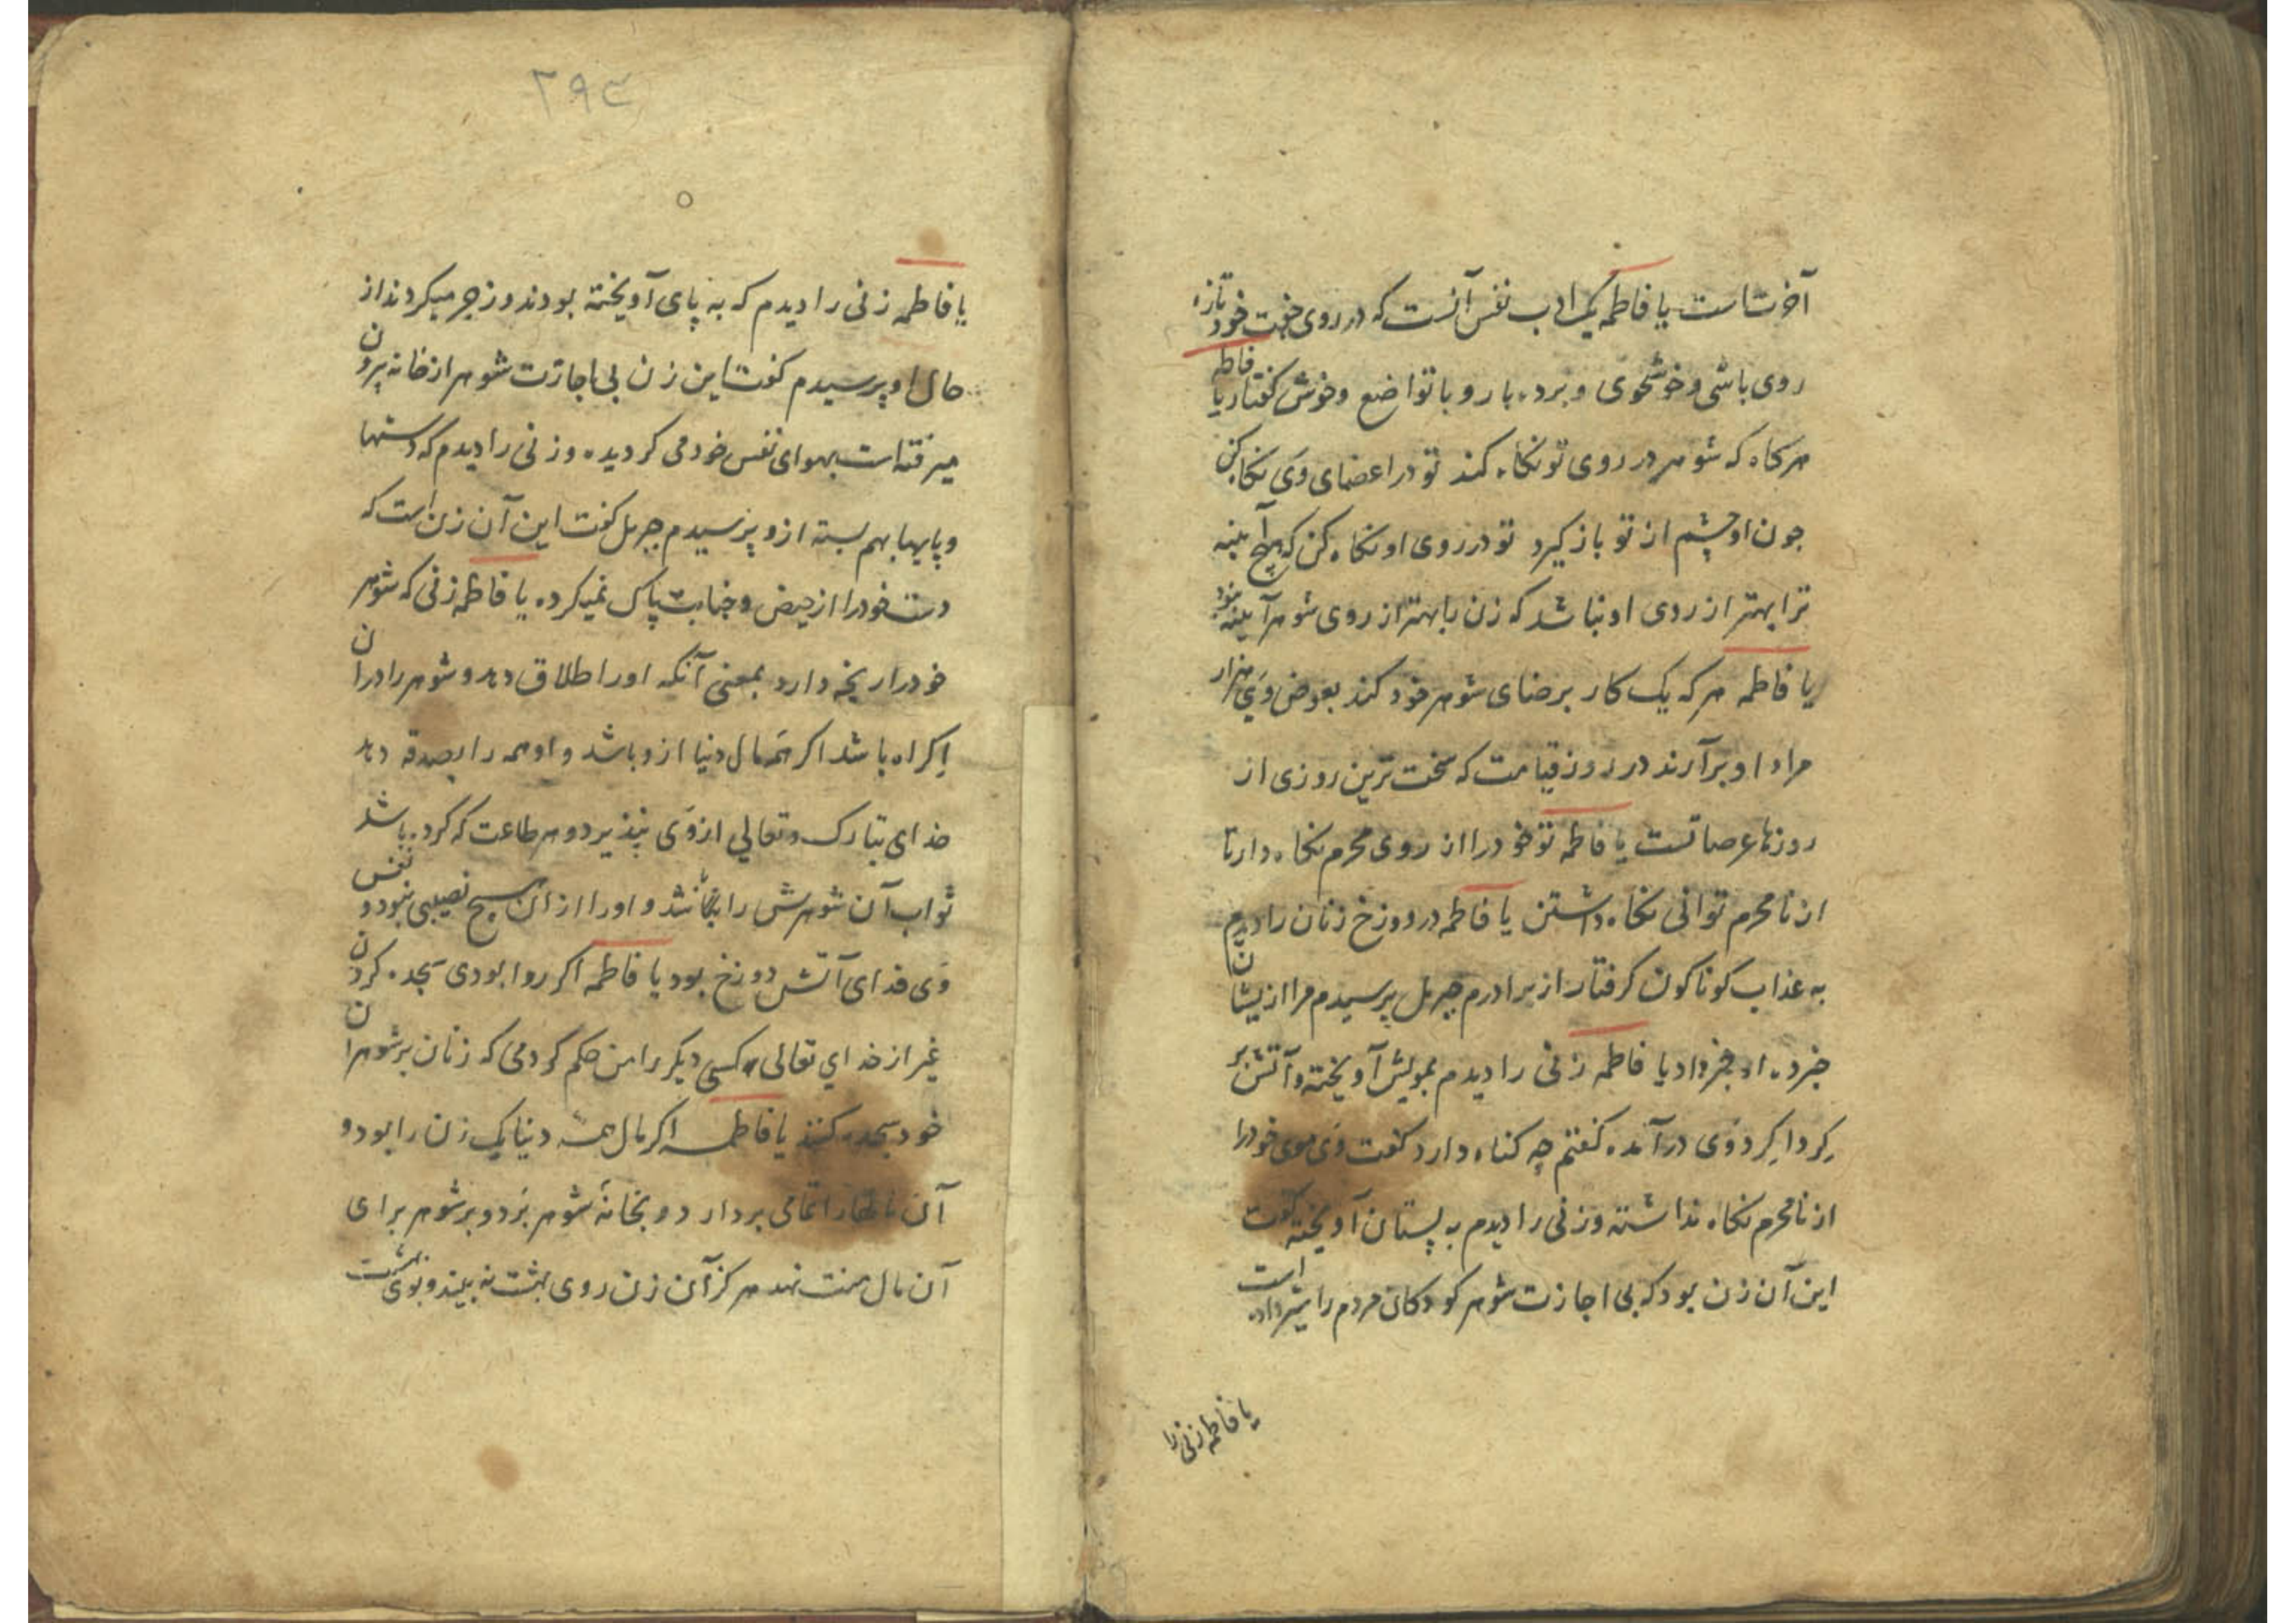 آخرتست یا فاطمه یک ادب نفس آنست که در روی جفت خود تازه
روی باشی و خوشخوی و بردبار و با تواضع و خوش گفتار یا فاطمه
هرکاه که شوهر در روی تو نکاه کند تو در اعضای وی نکاه کن
چون او چشم از تو باز گیرد تو در روی او نکاه کن که هیچ آیینه
ترا بهتر از روی او نباشد که زن را بهتر از روی شوهر آیینه نبود
یا فاطمه هر که یک کار برضای شوهر خود کند بعوض وی هزار
مراد او برآرند در روز قیامت که سخت ترین روزی از
روزها عرصاتست یا فاطمه تو خود را از روی محرم نکاه دار تا
از نامحرم توانی نکاه داشتن یا فاطمه در دوزخ زنان را دیدم
به عذاب کوناکون کرفتار از برادرم جبرئل پرسیدم مرا از یشان
خبر ده او خبر داد یا فاطمه زنی را دیدم بمویش آویخته و آتش بر
کرداکرد وی درآمده کفتم چه کناه دارد کفت وی موی خود را
از نامحرم نکاه نداشته و زنی را دیدم به پستان آویخته کفت
این آن زن بود که بی اجازت شوهر کودکان مردم را شیر داده است
یا فاطمه زنی را
۲۹۴
یا فاطمه زنی را دیدم که به پای آویخته بودند و زجر میکردند از
حال او پرسیدم کفت این زن بی اجازت شوهر از خانه برون
میرفته است بهوای نفس خود می کردیده و زنی را دیدم که دستها
و پایها بهم بسته ازو پرسیدم جبرئل کفت این آن زن است که
دست خود را از حیض و جنابت پاک نمیکرده یا فاطمه زنی که شوهر
خود را رنجه دارد بمعنی آنکه او را طلاق دهد و شوهر را در آن
اکراه باشد اکر همه مال دنیا ازو باشد و او همه را بصدقه دهد
خدای تبارک و تعالی از وی نپذیرد و هر طاعت که کرده باشد
ثواب آن شوهرش را باشد و او را از آن هیچ نصیبی نبود و نفس
وی فدای آتش دوزخ بود یا فاطمه اکر روا بودی سجده کردن
غیر از خدای تعالی کسی دیکر را من حکم کردمی که زنان بر شوهران
خود سجده کنند یا فاطمه اکر مال همه دنیا یک زن را بود و
آن را تمامی بردارد و بخانهٔ شوهر برد و بر شوهر برای
آن مال منت نهد هرکز آن زن روی بهشت نه بیند و بوی بهشت